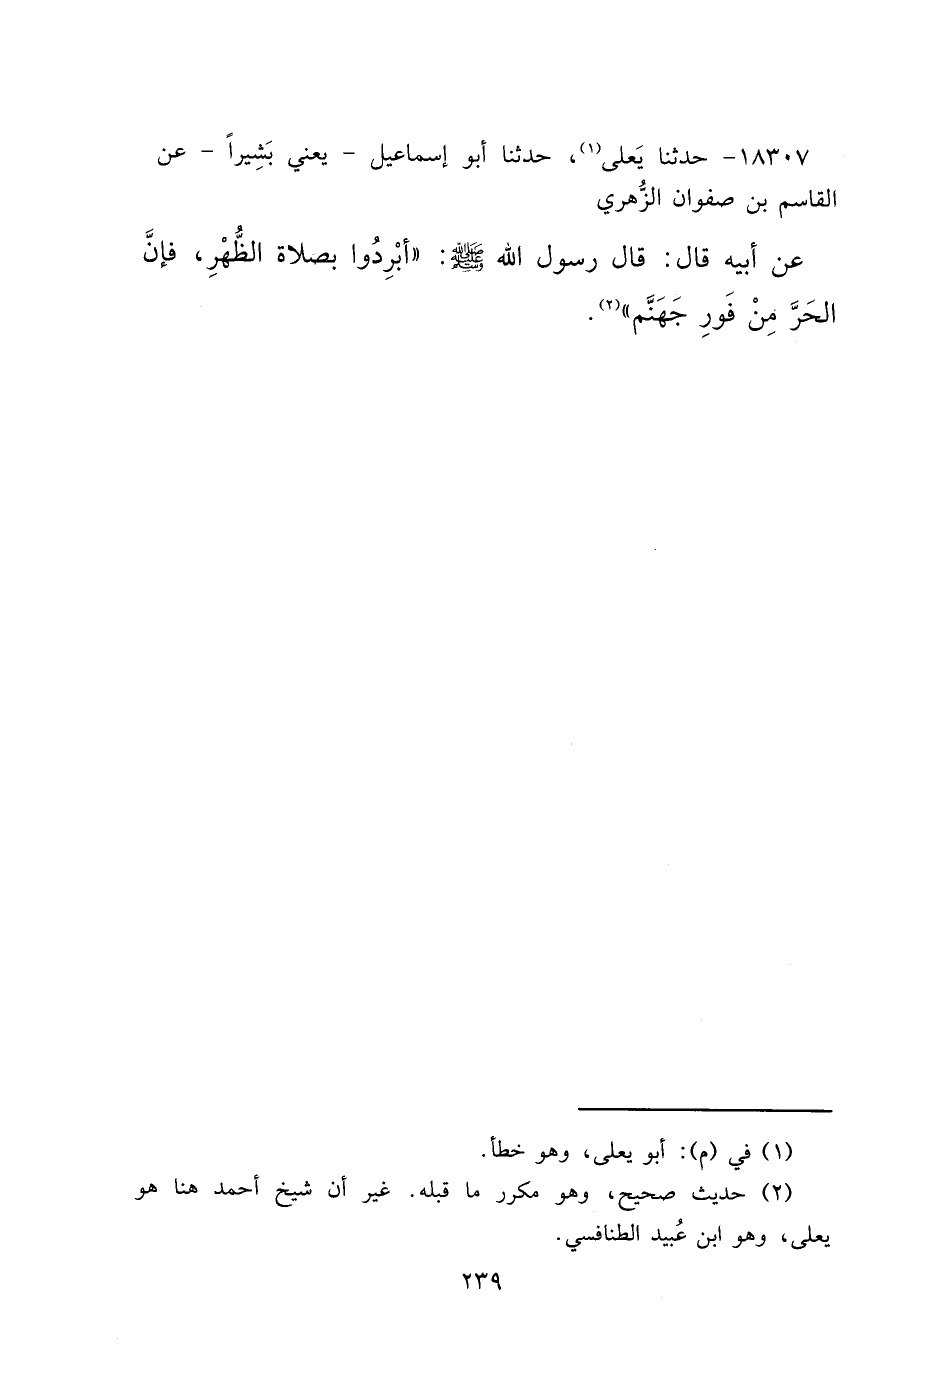 ١٨٣٠٧- حدثنا يَعلى(١)، حدثنا أبو إسماعيل - يعني بَشِيراً - عن
القاسم بن صفوان الزُّهري
عن أبيه قال: قال رسول الله ﷺ: «أبْرِدُوا بصلاة الظُّهْرِ، فإنَّ
الحَرَّ مِنْ فَورِ جَهَنَّم»(٢).
(١) في (م): أبو يعلى، وهو خطأ.
(٢) حديث صحيح، وهو مكرر ما قبله. غير أن شيخ أحمد هنا هو
يعلى، وهو ابن عُبيد الطنافسي.
٢٣٩